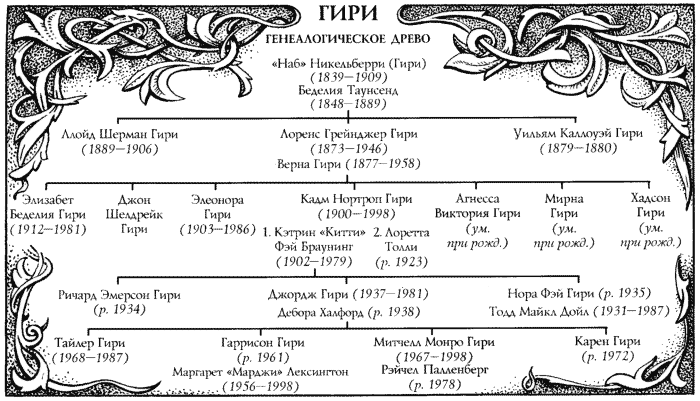 ГИРИ
ГЕНЕАЛОГИЧЕСКОЕ ДРЕВО
«Наб» Никельберри (Гири)
(1839—1909)
Беделия Таунсенд
(1848—1889)
Ллойд Шерман Гири
(1889—1906)
Лоренс Грейнджер Гири
(1873—1946)
Верна Гири (1877—1958)
Уильям Каллоуэй Гири
(1879—1880)
Элизабет
Беделия Гири
(1912—1981)
Джон
Шелдрейк
Гири
Элеонора
Гири
(1903—1986)
Кадм Нортроп Гири
(1900—1998)
1. Кэтрин «Китти»
Фэй Браунинг
(1902—1979)
2. Лоретта
Толли
(р. 1923)
Агнесса
Виктория Гири
(ум.
при рожд.)
Мирна
Гири
(ум.
при рожд.)
Хадсон
Гири
(ум.
при рожд.)
Ричард Эмерсон Гири
(р. 1934)
Джордж Гири (1937—1981)
Дебора Халфорд (р. 1938)
Нора Фэй Гири (р. 1935)
Тодд Майкл Дойл (1931—1987)
Тайлер Гири
(1968—1987)
Гаррисон Гири
(р. 1961)
Маргарет «Марджи» Лексингтон
(1956—1998)
Митчелл Монро Гири
(1967—1998)
Рэйчел Палленберг
(р. 1978)
Карен Гири
(р. 1972)